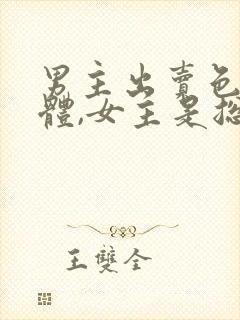 男主出賣色
體,女主是捴
王雙全